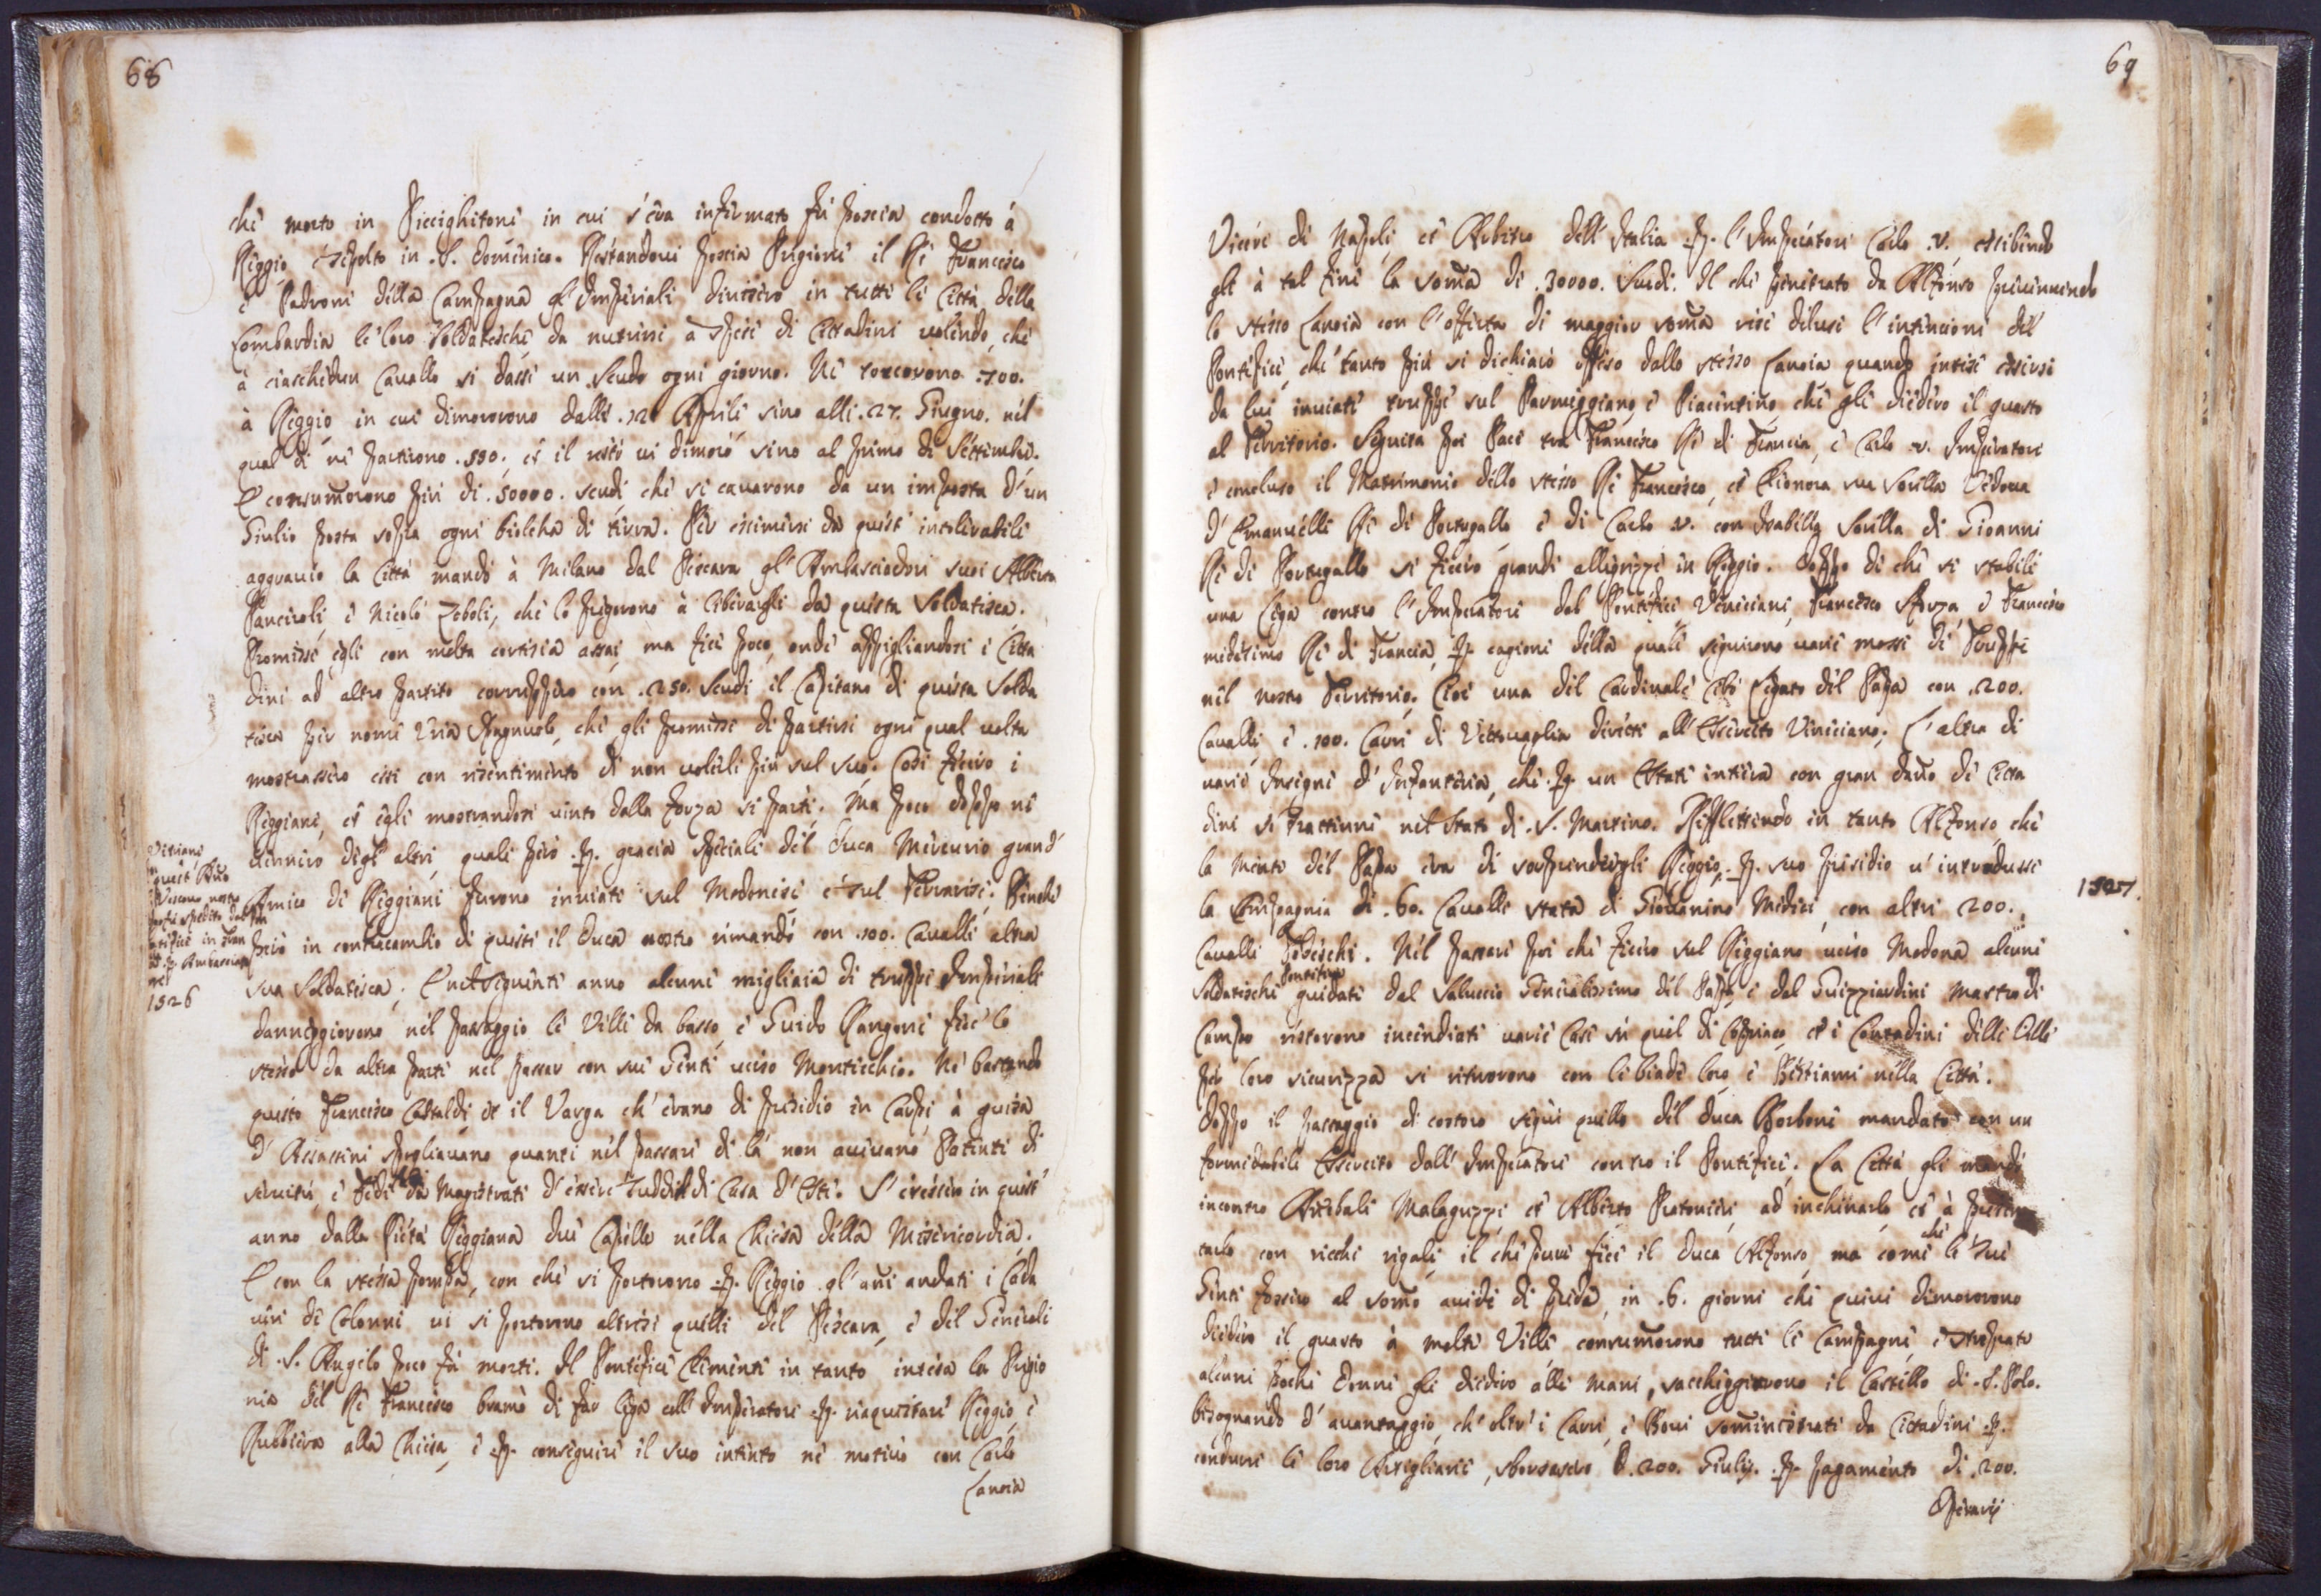 68
che morto in Piccighitone in cui s'era infirmato fù poscia condotto à
Reggio, e sepolto in .S. Domenico. Restandovi poscia Prigione il Rè Francesco
e Padroni della Campagna gl'Imperiali divisero in tutte le Città della
Lombardia le loro Soldatesche da nutrirsi à spese di Cittadini volendo, che
à ciaschedun Cavallo si dassi un Scudo ogni giorno. Ne toccorono .700.
à Reggio in cui dimororono dalli .12. Aprile sino alli .27. Giugno. nel
qual dì ne partirono .550. et il resto vi dimorò sino al primo di Settembre.
E consumorono più di .50000. scudi che si cavarono da un imposta d'un
Giulio posta sopra ogni biolcha di terra. Per esimersi da quest' intolerabile
aggravio la Città mandò à Milano dal Pescara gl'Ambasciadori suoi Alberto
Panciroli, e Nicolò Zoboli, che lo pregorono à liberargli da questa Soldatesca.
Promisse egli con molta cortesia assai, ma fece poco, onde appigliandosi i Citta
dini ad altro partito corruppero con .250. Scudi il Capitano di questa Solda
tesca per nome Uria Spagnuolo, che gli promisse di partirsi ogni qual volta
mostrassero essi con risentimento di non volerli più sul suo. Così fecero i
Reggiani, et egli mostrandosi vinto dalla forza si partì. Ma poco doppo ne
vennero degl'altri, quali però .p. gracia speciale del Duca Mercurio grand'
Amico di Reggiani furono inviati sul Modonese e sul Ferrarese. Benchè
però in contracambio di questi il Duca nostro rimandò con .100. Cavalli altra
sua Soldatesca. E nel sequente anno alcune migliaia di truppe Imperiali
dannegiorono nel passaggio le Ville da basso, e Guido Rangone fece lo
stesso da altra parte nel passar con sue Genti verso Montecchio. Ne bastando
questo Francesco Castaldi, et il Varga ch'erano di presidio in Carpi, à guisa
d'Assassini spogliavano quanti nel passare di là non avevano Patente di
servitù, e fede da Magistrati d'essere sudditi di Casa d'Este. S'eressero in quest'
anno dalla Pietà Reggiana due Capelle nella Chiesa della Misericordia.
E con la stessa pompa, con che si portorono .p. Reggio gl'anni andati i Cada
veri de Colonni vi si portorono altresi quelli del Pescara, e del Generale
di .S. Angelo poco fà morti. Il Pontefice Clemente in tanto intesa la Prigio
nia del Rè Francesco bramò di far lega coll'Imperatore .p. riaquistare Reggio, e
Rubbiera alla Chiesa, e .p. conseguire il suo intento ne motivò con Carlo
Lanoia
quest' Anno
Vescovo nostro
fù spedito dal Pon
tefice in Fran
.p. Ambasciatore
1526
69
Vicere di Napoli et Arbitro dell'Italia .p. l'Imperatore Carlo .V. essibendo
gli à tal fine la somma di .30000. Scudi. Il che penetrato da Alfonso prevenendo
lo stesso Lanoia con l'offerta di maggior somma rese deluse l'intencioni del
Pontefice, che tanto più si dichiarò offeso dallo stesso Lanoia quando intese essersi
da lui inviate truppe sul Parmeggiano, e Piacentino che gli diedero il guasto
al Territorio. Seguita poi Pace tra Francesco Rè di Francia, e Carlo .V. Imperatore
e concluso il Matrimonio dello stesso Rè Francesco, et Eleonora sua Sorella Vedova
d'Emanuelle Rè di Portugallo e di Carlo .V. con Isabella Sorella di Gioanni
Rè di Portugallo si fecero grandi allegrezze in Reggio. Doppo di che si stabilì
una Lega contro l'Imperatore dal Pontefice Veneciani, Francesco Sforza, e Francesco
medesimo Rè di Francia, .p. cagione della quale seguirono varie mosse di Truppe
nel nostro Territorio. Cioè una del Cardinale Cibò Legato del Papa con .200.
Cavalli, e .100. Carri di Vettovaglia diretti all'Essercito Veneciano. L'altra di
varie Insegne d'Infanteria, che .p. un Estate intiera con gran dano de Citta
dini si trattenne nel Stato di .S. Martino. Riflettendo in tanto Alfonso, che
la mente del Papa era di sorprendergli Reggio, .p. suo presidio v'introdusse
la Compagnia di .60. Cavalli stata di Giovanino Medici, con altri 200.
1527.
Cavalli Tedeschi. Nel passare poi che fecero sul Reggiano verso Modona alcune
Soldatesche Pontificie guidate dal Saluccio Generalissimo del Papa, e dal Guizzardini Mastro di
Campo restorono incendiate varie Case sù quel di Cogniaco, et i Contadini delle Ville
per loro sicurezza si ritirorono con le biade loro, e Bestiami nella Città.
Doppo il passaggio di costoro seguì quello del Duca Borbone mandato con un
formidabile Essercito dall'Imperatore contro il Pontefice. La Città gli mandò
incontro Anibale Malaguzzi, et Alberto Pratonieri, ad inchinarlo, et à presen
tarlo con ricchi regali, il che pure fece il Duca Alfonso, ma come che le sue
Genti fossero al somo avide di preda, in .6. giorni che quivi dimororono
diedero il guasto à molte Ville consumorono tutte le Campagne, e strupate
alcune poche Donne gli diedero alle mani, sacchiggiorono il Castello di .S. Polo.
bisognando d'avantaggio, ch'oltr'i Carri, e Bovi somministrati da Cittadini .p.
condurre le loro Arteglierie, sborsassero .200. Giulij .p. pagamento di .200.
Operarij